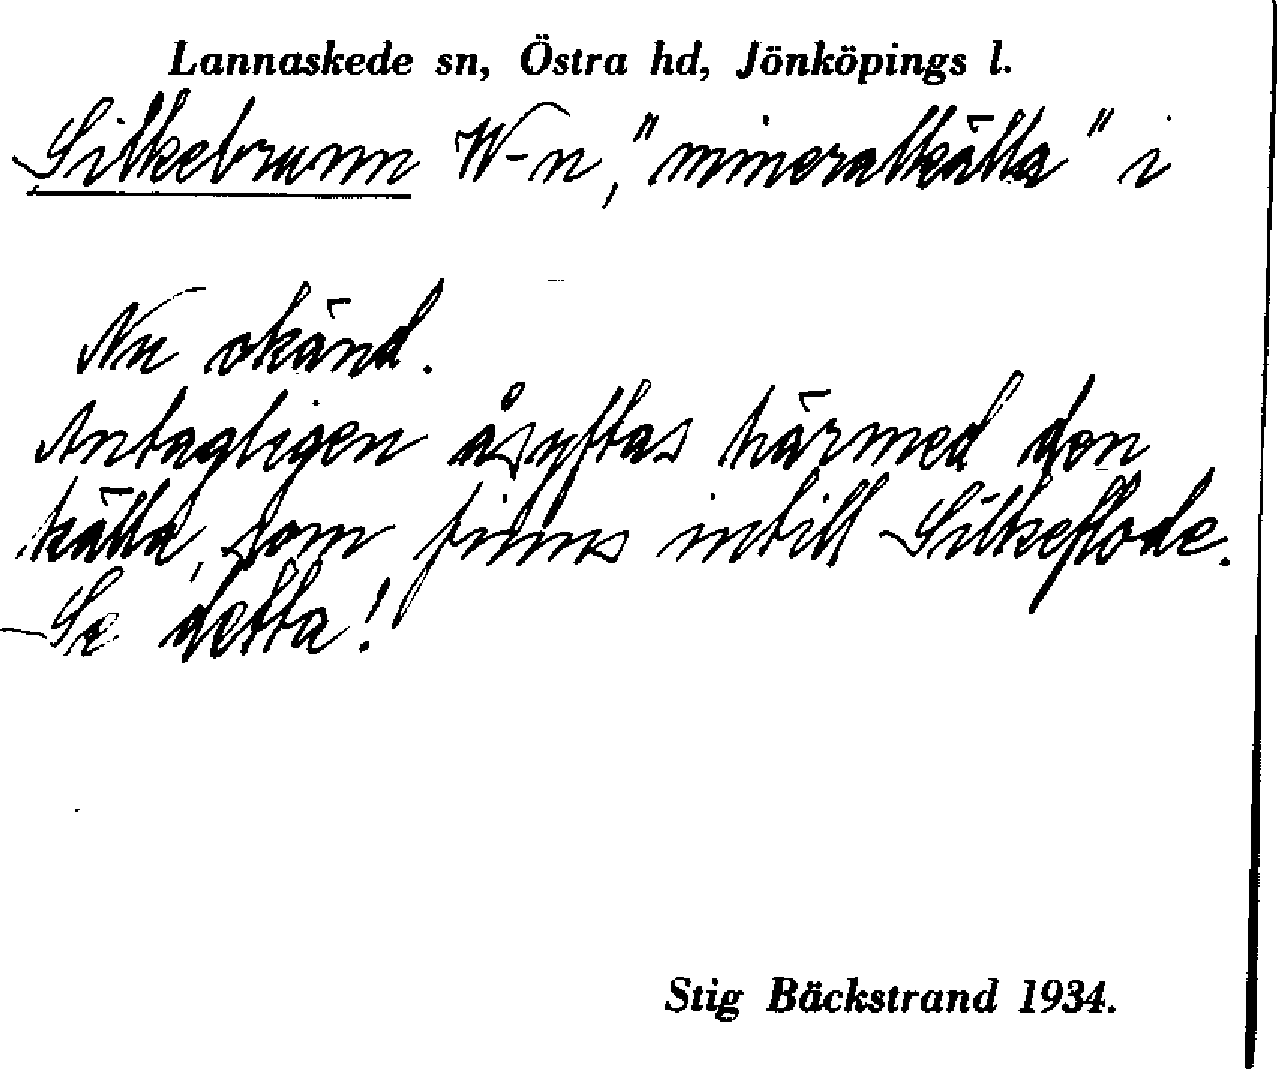 Lannaskede sn, Östra hd, Jönköpings l.
Silkebrunn W-n, "mineralkälla" i
Nu okänd.
Antagligen åsyftas härmed den
källa, som finns intill Silkeflode.
Se detta!
Stig Bäckstrand 1934.